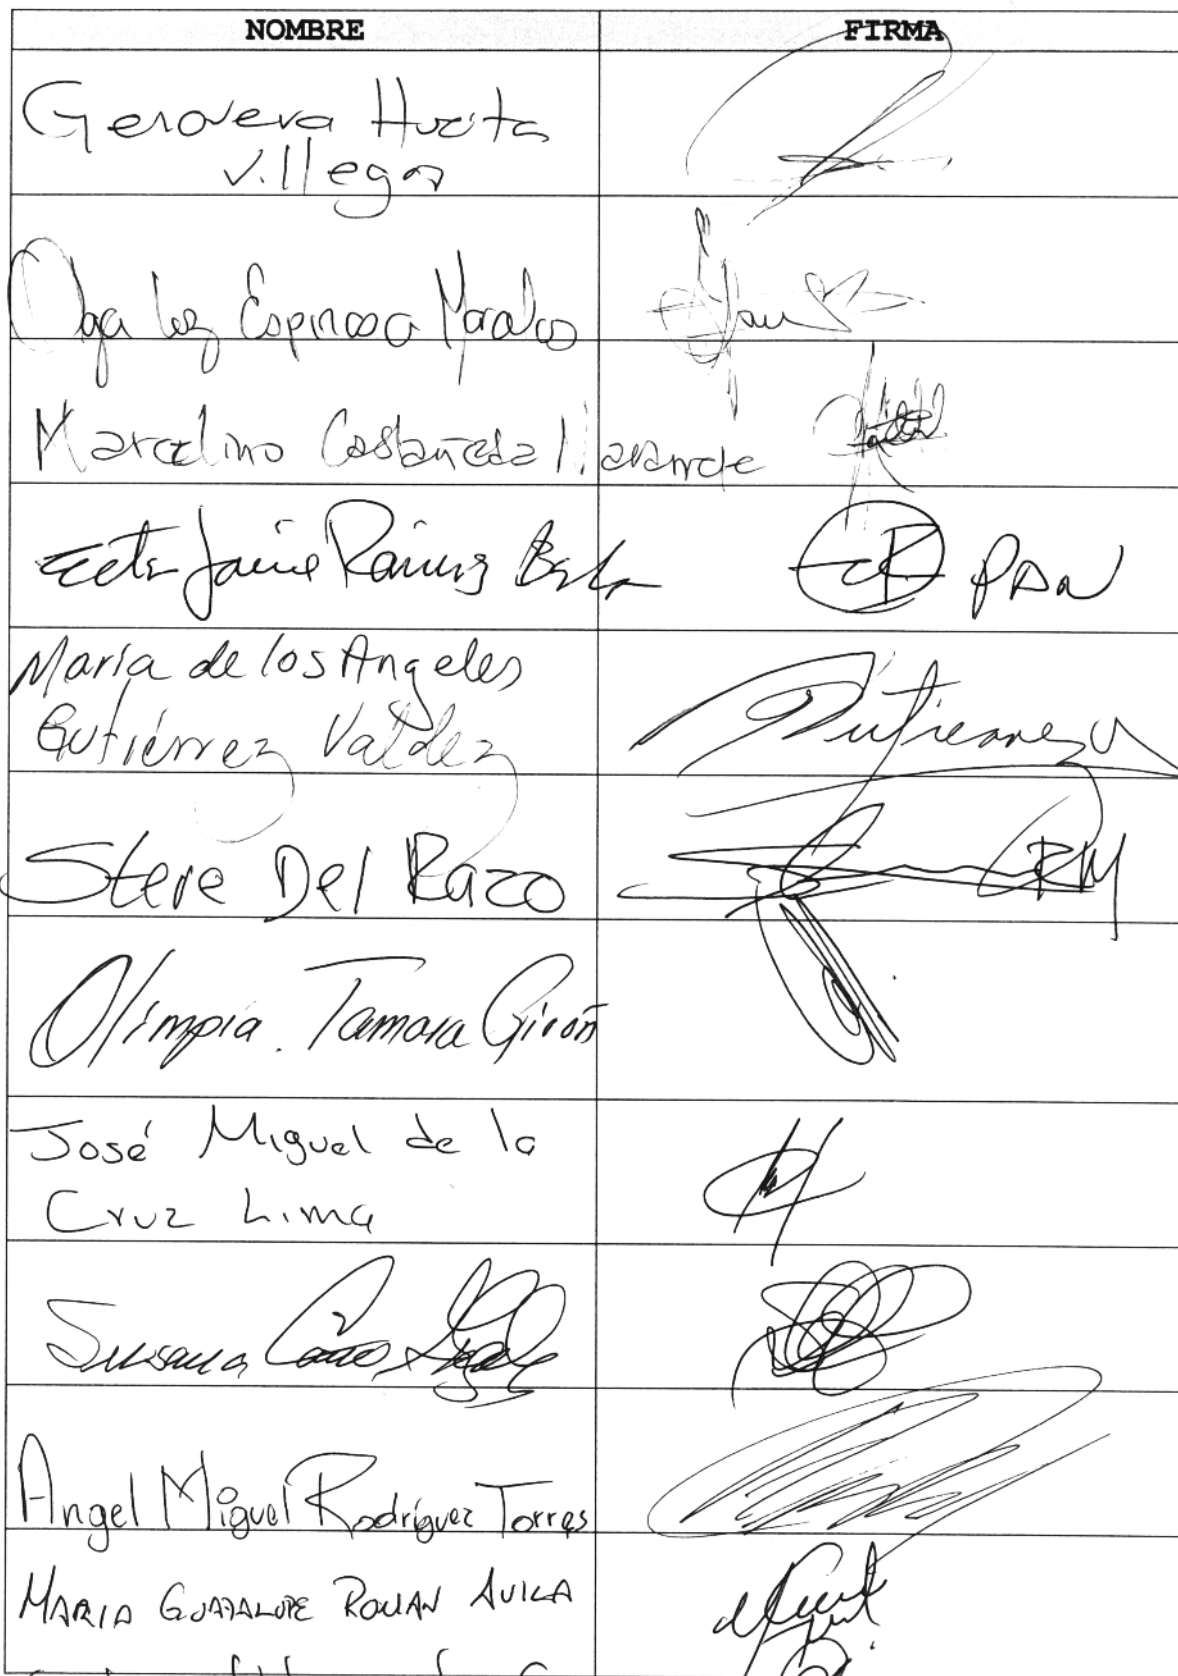 NOMBRE FIRMA
Genoveva Huerta
Villegas
Olga Luz Espinosa Morales
Marcelino Castañeda Navarrete
Jaime Ramírez PAN
María de los Angeles
Gutiérrez Valdez Gutierrez V
Steve Del Razo RM
Olimpia Tamara Girón
José Miguel de la
Cruz Lima
Susana Cano
Angel Miguel Rodríguez Torres
MARIA GUADALUPE ROMAN AVILA